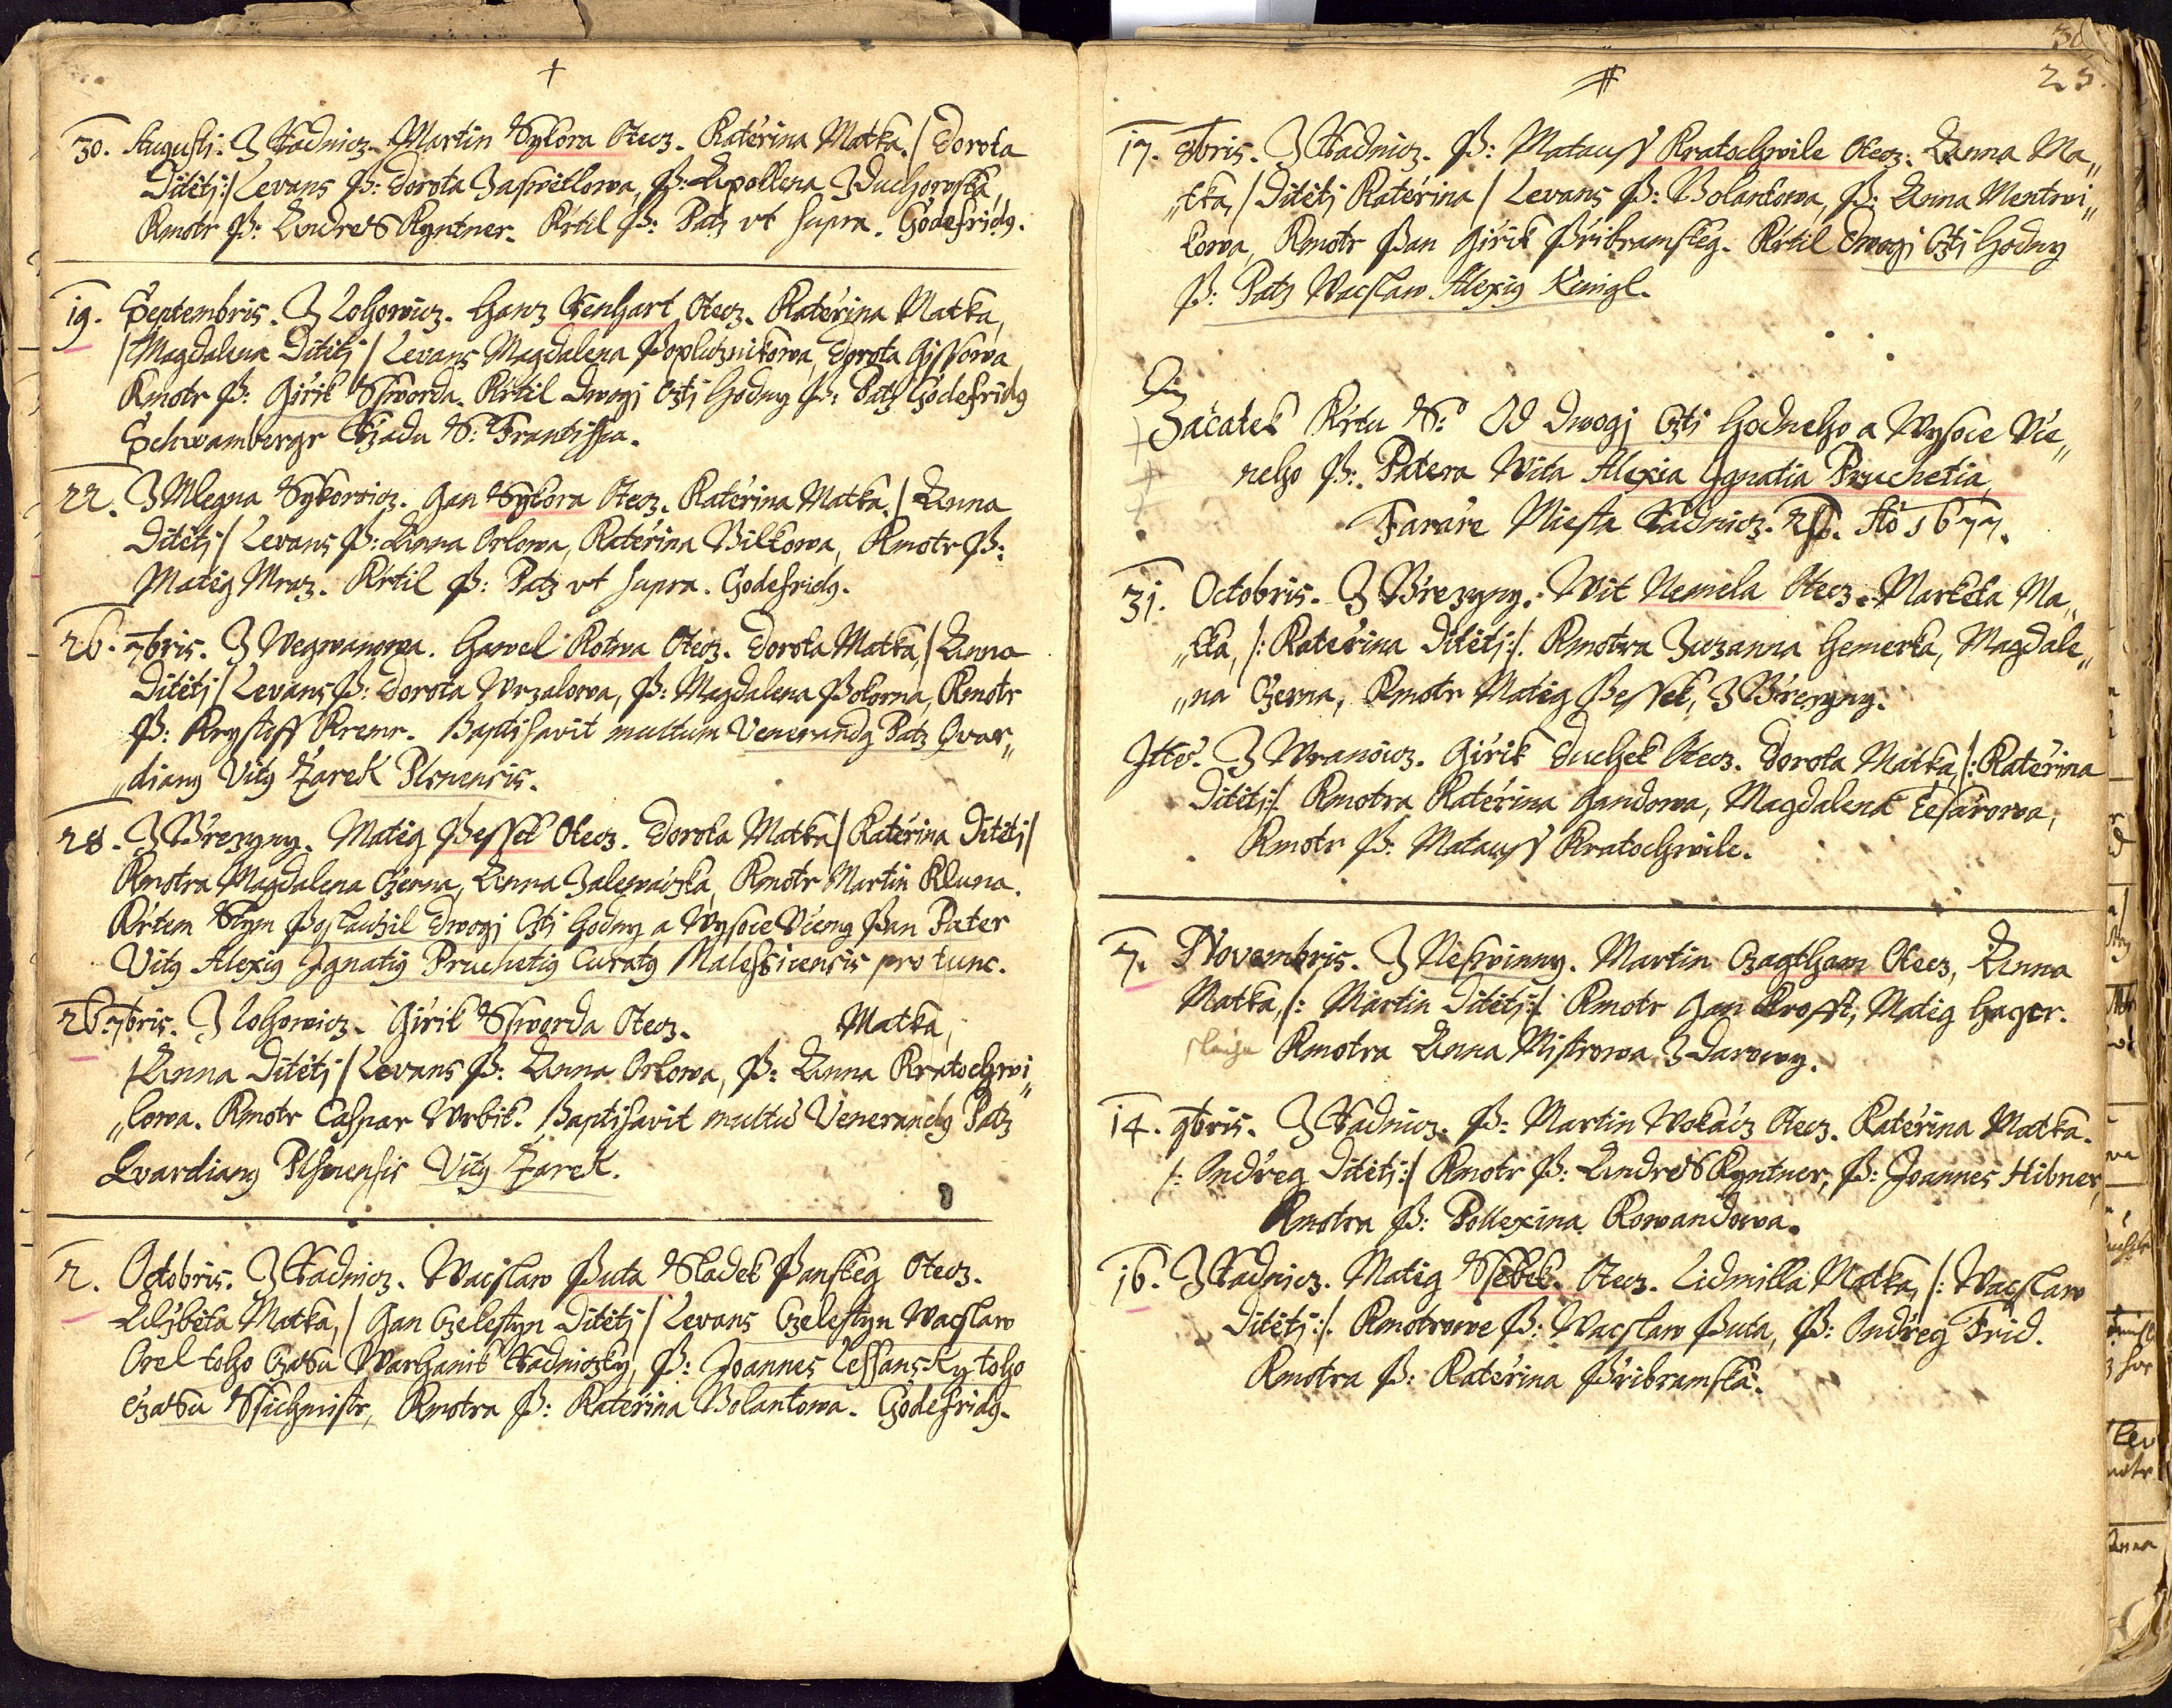 30. Augusti. Z Radnicz. Martin Sykora Otecz. Kateřina Matka. / Dorota
Ditětj :/ Levans P: Dorota Zaswětlowa, P: Apollena Zduchowska,
Kmotr P: Andres Kyntner. Křtil P: Patz vt supra. Godefridg.
19. Septembris. Z Lohowicz. Hanz Lenhart Otecz. Kateřina Matka,
/ Magdalena Ditětj / Levans Magdalena Poplužnikowa, Dorota Gissowa
Kmotr P: Giřik Skworda. Křtil Dwogi Cti Hodny P: Patz Godefridg
Schwambergr Ržadu S: Frantisska.
22. Z Mlegna Sykorowicz. Gan Sykora Otecz. Kateřina Matka. / Anna
Ditětj / Levans P: Anna Orlowa, Kateřina Bilkowa, Kmotr P:
Matěg Mraz. Křtil P: Patz vt supra. Godefridg.
26. 7bris. Z Wegwanowa. Hawel Kotwa Otecz. Dorota Matka, / Anna
Ditětj / Levans P: Dorota Wrzalowa, P: Magdalena Pokorna, Kmotr
P: Krystoff Kremr. Baptisavit multum Venerandg Patz Qvar„
„diang Vitg Žarek Plsnensis.
28. Z Březyny. Matěg Pessek Otecz. Dorota Matka / Kateřina Ditětj /
Kmotra Magdalena Czerna, Anna Zalewačka, Kmotr Martin Kluna.
Křtem S tym Poslaužil Dwogi Cti Hodny a Wysoce Včeny Pan Pater
Vitg Alexig Ignatig Pruchetig Curatg Malessicensis pro tunc.
26. 7bris. Z Lohowicz. Giřik Skworda Otecz. Matka,
/ Anna Ditětj / Levans P: Anna Orlowa, P: Anna Kratochwi„
„lowa. Kmotr Caspar Wrbik. Baptisavit multū Venerandg Patz
Qvardiang Plsnensis Vitg Žarek.
2. Octobris. Z Radnicz. Wacslaw Puta Sladek Panskeg Otecz.
Alžběta Matka, / Gan Czelestyn Ditětj / Levans Czelestyn Wacslaw
Orel toho Czasu Warhanik Radniczky, P: Joannes Lessansky toho
Czasu Ssichmistr, Kmotra P: Kateřina Bolantowa. Godefridg.
25.
17. 8bris. Z Radnicz. P: Matauss Kratochwile Otecz. Anna Ma„
„tka, / Ditětj Kateřina / Levans P: Bolantowa, P: Anna Mentwi„
lowa, Kmotr Pan Giřik Přibramskeg. Křtil Dwogi Cti Hodny
P: Patz Wacslaw Alexig Kinigl.
Začatek Křtu S: Od Dwogi Cti Hodneho a Wysoce Vče„
neho P: Patera Wita Alexia Ignatia Pruchetia,
Farare Miesta Radnicz. Ao 1677.
31. Octobris. Z Březyny. Wit Nemela Otecz. Marketa Ma„
„tka, /: Kateřina Ditětj :/. Kmotra Zuzanna Hemerka, Magdale„
„na Czerna, Kmotr Matěg Pessek, Z Březyny.
Ittē. Z Wranowicz. Giřik Duchek Otecz. Dorota Matka, /: Kateřina
Ditětj :/. Kmotra Kateřina Gandowa, Magdalena Tesařowa,
Kmotr P: Matauss Kratochwile.
7. Novembris. Z Neswinny. Martin Czagtham Otecz, Anna
Matka, /: Martin Ditětj :/ Kmotr Gan Krofft, Matěg Hager.
Kmotra Anna Mistrowa Z Darowy.
14. 9bris. Z Radnicz. P: Martin Wokacz Otecz. Kateřina Matka.
/: Ondřeg Ditětj :/ Kmotr P: Andres Kyntner, P: Joannes Hibner,
Kmotra P: Pollexina Kowandowa.
16. Z Radnicz. Matěg Skebek. Otecz. Lidmilla Matka, /: Wacslaw
Ditětj :/. Kmotrowe P: Wacslaw Puta, P: Ondřeg Frid.
Kmotra P: Kateřina Přibramska.